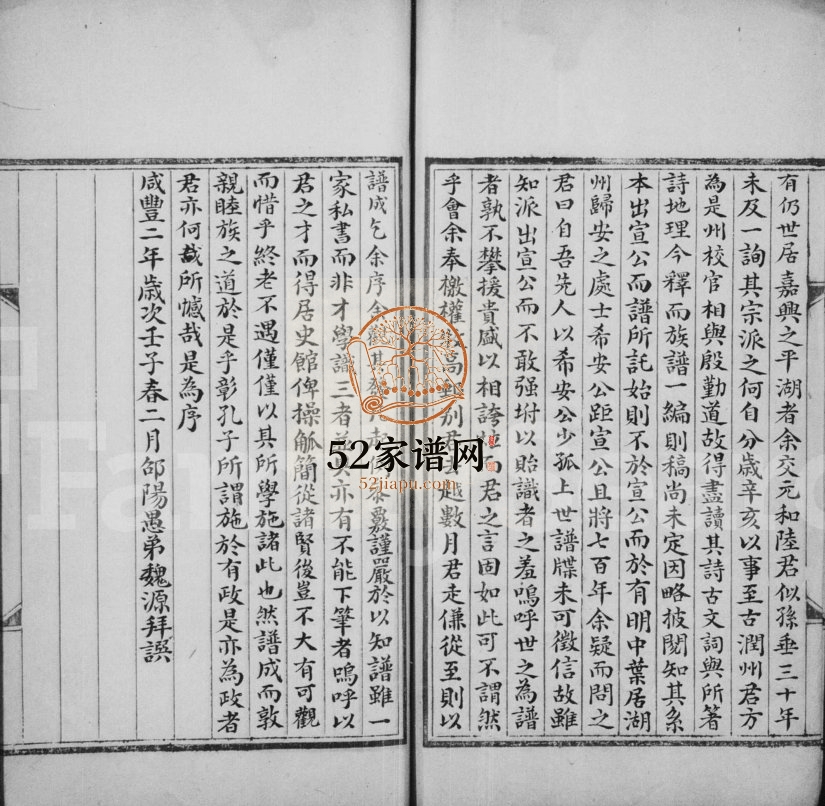 有仍世居嘉興之平湖者余交元和陸君似孫垂三十年
未及一詢其宗派之何自分歲辛亥以事至古潤州君方
為是州校官相與殷勤道故得盡讀其詩古文詞與所箸
詩地理今釋而族譜一編則稿尚未定因略披閱知其系
本出宣公而譜所託始則不於宣公而於有明中葉居湖
州歸安之處士希安公距宣公且將七百年余疑而問之
君曰自吾先人以希安公少孤上世譜牒未可徵信故雖
知派出宣公而不敢强坿以貽識者之羞嗚呼世之為譜
者孰不攀援貴盛以相誇君之言固如此可不謂然
乎會余奉檄權高別君越數月君走傔從至則以
譜成乞余序余觀其嚴謹嚴於以知譜雖一
家私書而非才學識三者亦有不能下筆者嗚呼以
君之才而得居史館俾操觚簡從諸賢後豈不大有可觀
而惜乎終老不遇僅僅以其所學施諸此也然譜成而敦
親睦族之道於是乎彰孔子所謂施於有政是亦為政者
君亦何憾哉是為序
咸豐二年歲次壬子春二月邵陽愚弟魏源拜譔
52家谱网
52jiapu.com